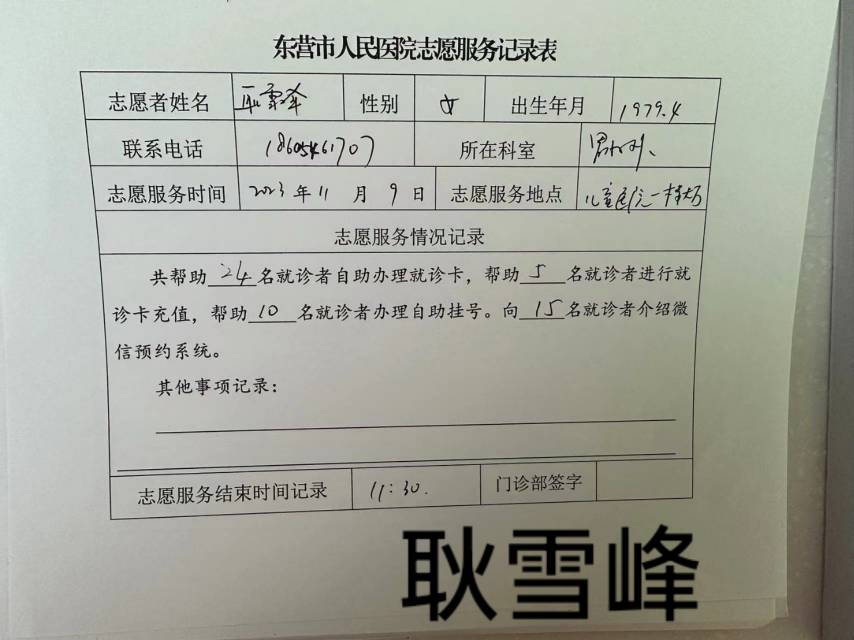 东营市人民医院志愿服务记录表
志愿者姓名 耿雪峰 性别 女 出生年月 1979.4
联系电话 18605461707 所在科室
志愿服务时间 2023年11月9日 志愿服务地点 儿童医院一楼大厅
志愿服务情况记录
共帮助24名就诊者自助办理就诊卡，帮助5名就诊者进行就
诊卡充值，帮助10名就诊者办理自助挂号。向15名就诊者介绍微
信预约系统。
其他事项记录：
志愿服务结束时间记录 11:30. 门诊部签字
耿雪峰